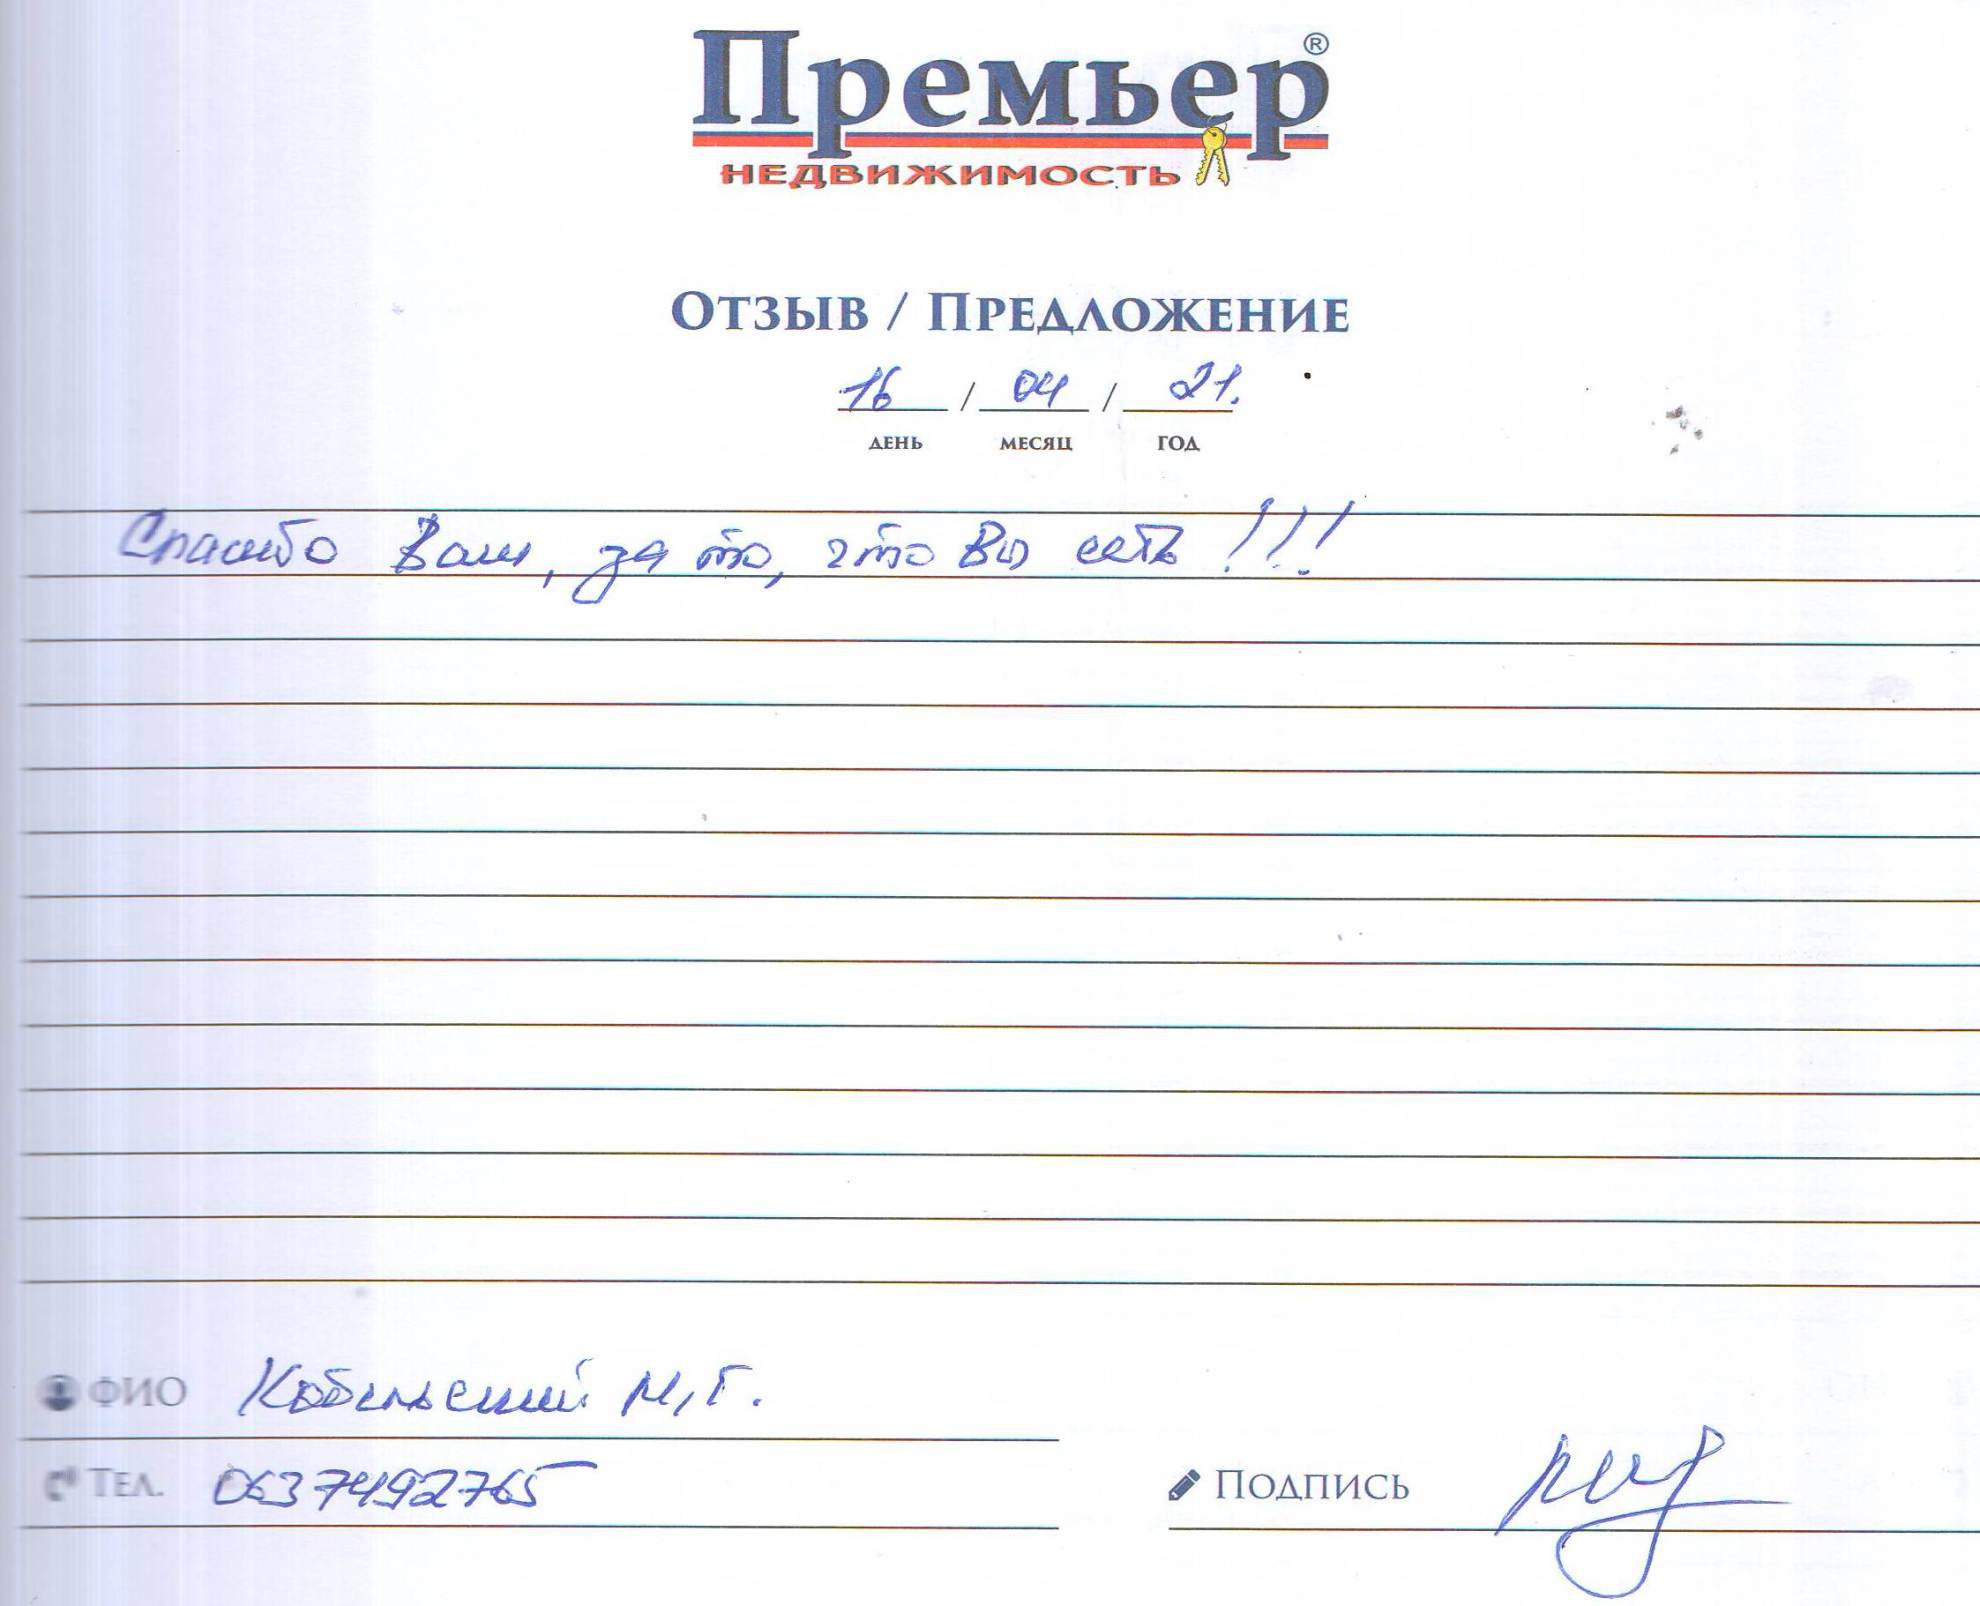 Премьер®
НЕДВИЖИМОСТЬ
ОТЗЫВ / ПРЕДЛОЖЕНИЕ
16 / 04 / 21.
ДЕНЬ МЕСЯЦ ГОД
Спасибо Вам, за то, что Вы есть !!!
ФИО Кобельский М.Г.
ТЕЛ. 0637492765
ПОДПИСЬ